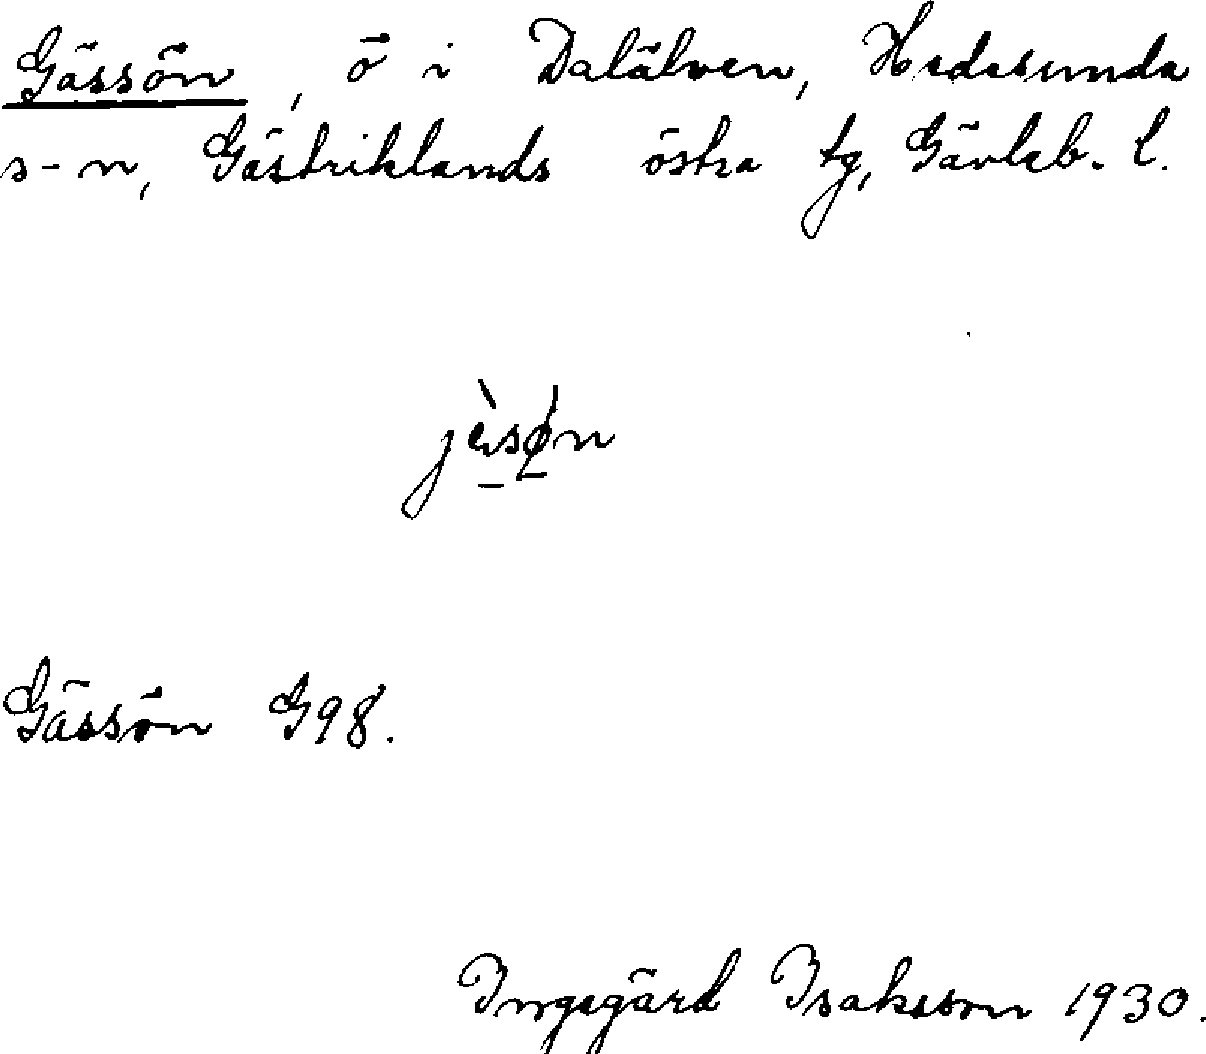 Gässön, ö i Dalälven, Hedesunda
s-n, Gästriklands östra tg, Gävleb. l.
Gässön G98.
Ingegärd Isaksson 1930.